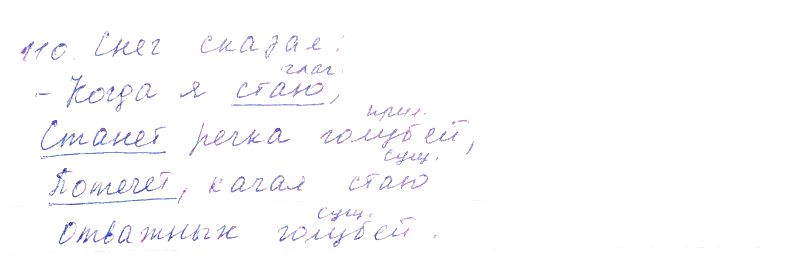 110. Снег сказал:
глаг.
- Когда я стаю,
прил.
Станет речка голубей,
сущ.
Потечет, качая стаю
сущ.
Отважных голубей.